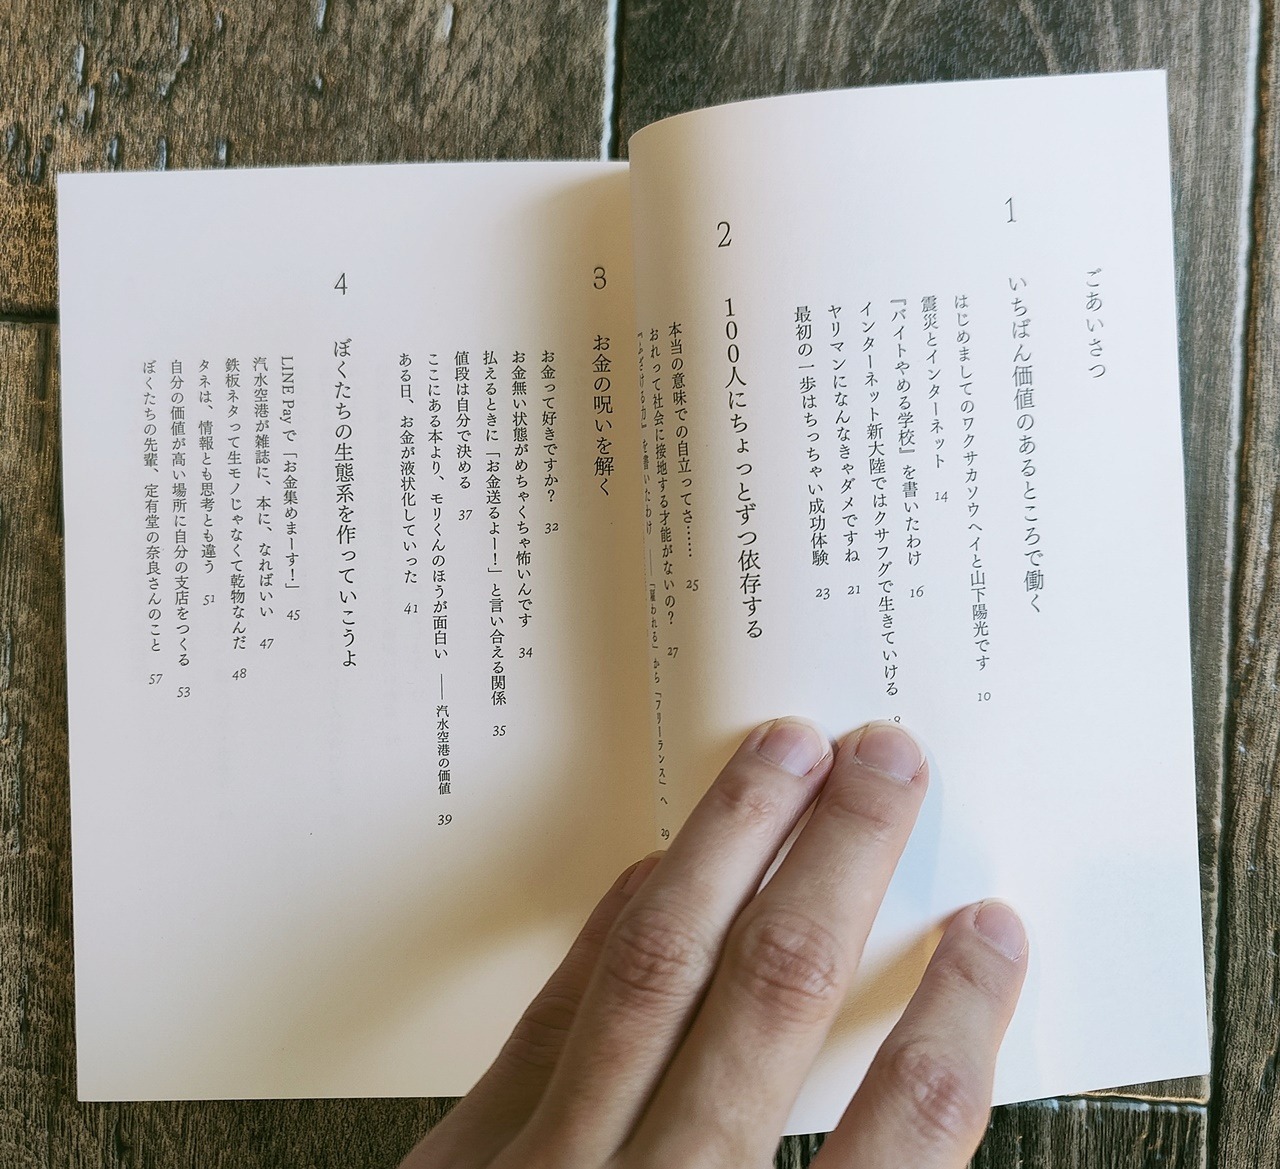 ごあいさつ
1 いちばん価値のあるところで働く
はじめましてのワクサカソウヘイと山下陽光です 10
震災とインターネット 14
『バイトやめる学校』を書いたわけ 16
インターネット新大陸ではクサフグで生きていける
ヤリマンになんなきゃダメですね 21
最初の一歩はちっちゃい成功体験 23
2 100人にちょっとずつ依存する
本当の意味での自立ってさ…… 25
おれって社会に接地する才能がないの? 27
『ふざける力』を書いたわけ ――「雇われる」から「フリーランス」へ 29
3 お金の呪いを解く
お金って好きですか? 32
お金無い状態がめちゃくちゃ怖いんです 34
払えるときに「お金送るよー!」と言い合える関係 35
値段は自分で決める 37
ここにある本より、モリくんのほうが面白い ――汽水空港の価値 39
ある日、お金が液状化していった 41
4 ぼくたちの生態系を作っていこうよ
LINE Payで「お金集めまーす!」 45
汽水空港が雑誌に、本に、なればいい 47
鉄板ネタって生モノじゃなくて乾物なんだ 48
タネは、情報とも思考とも違う 51
自分の価値が高い場所に自分の支店をつくる 53
ぼくたちの先輩、定有堂の奈良さんのこと 57